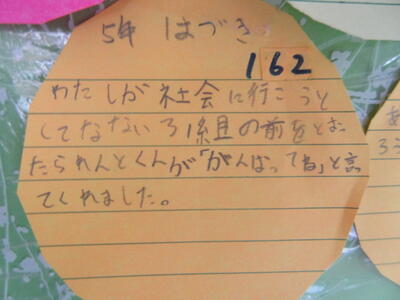 5年 はづき
162
わたしが社会に行こうと
してなない3組の前をとお
たられんとくんが「がんばってね」と言
てくれました。